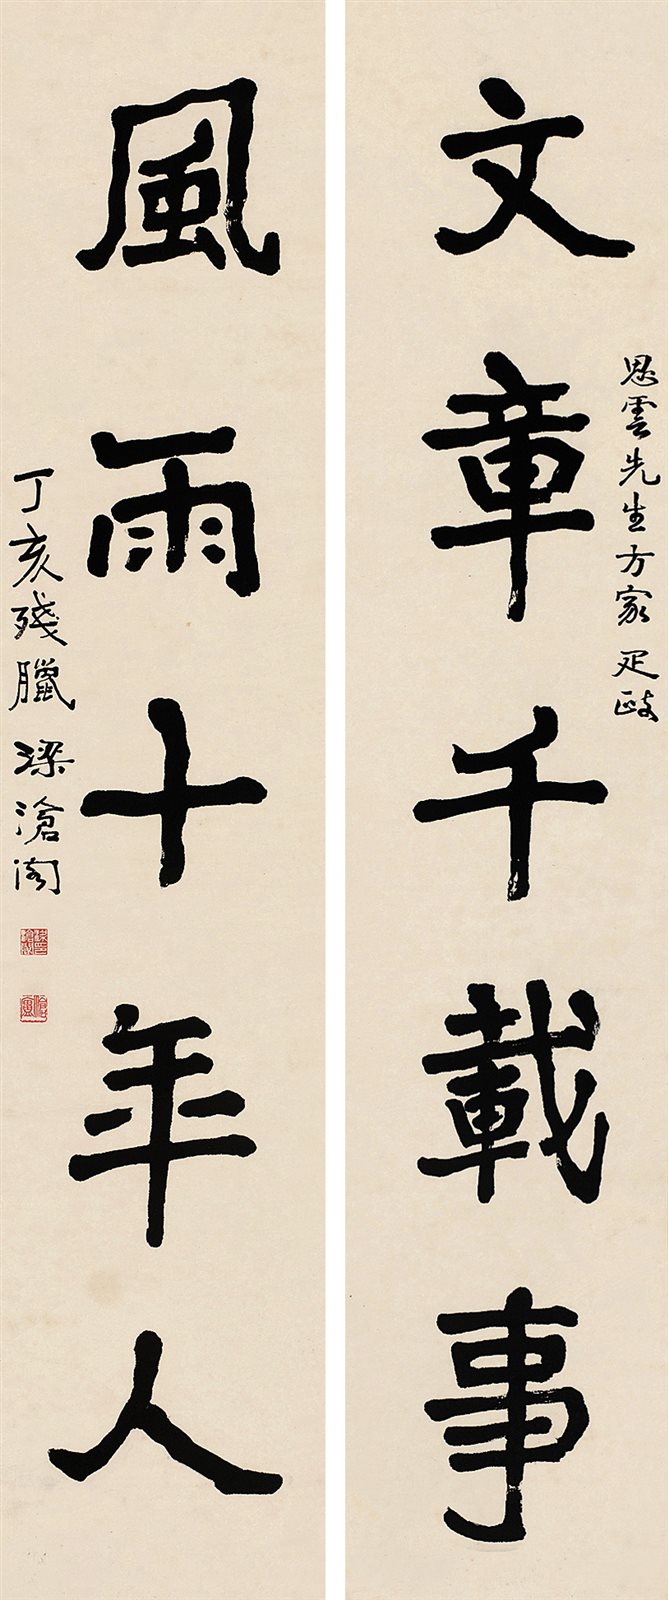 文章千載事
思雲先生方家 疋政
風雨十年人
丁亥殘臘 梁滄閣